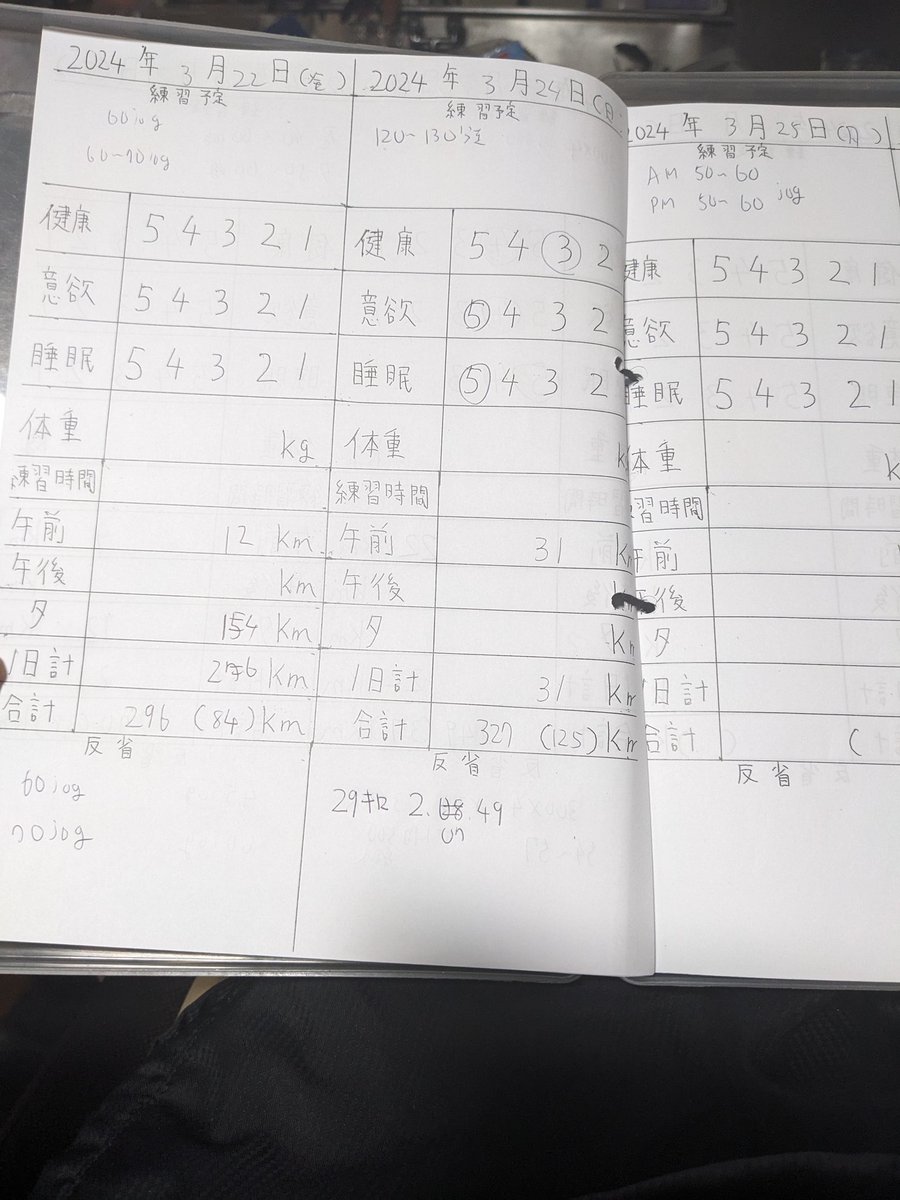 2024 年 3 月 22 日 (金)
練習予定
60jog
60~70jog
健康 5 4 3 2 1
意欲 5 4 3 2 1
睡眠 5 4 3 2 1
体重 kg
練習時間
午前 12 Km
午後 Km
夕 Km
1日計 Km
合計 296 (84) Km
反省
60jog
70jog
2024 年 3 月 24 日 (日
練習予定
健康 5 4 3 2
意欲 5 4 3 2
睡眠 5 4 3 2
体重 k
練習時間
午前 31 Km
午後
夕 Km
1日計 31 Km
合計 327 (125) Km
反省
29キロ 2. 07 .49
2024 年 3 月 25 日 (月)
練習予定
AM 50~60
PM 50~60 jog
健康 5 4 3 2 1
意欲 5 4 3 2 1
睡眠 5 4 3 2 1
体重 k
練習時間
午前
後
夕
1日計
合計 (
反省